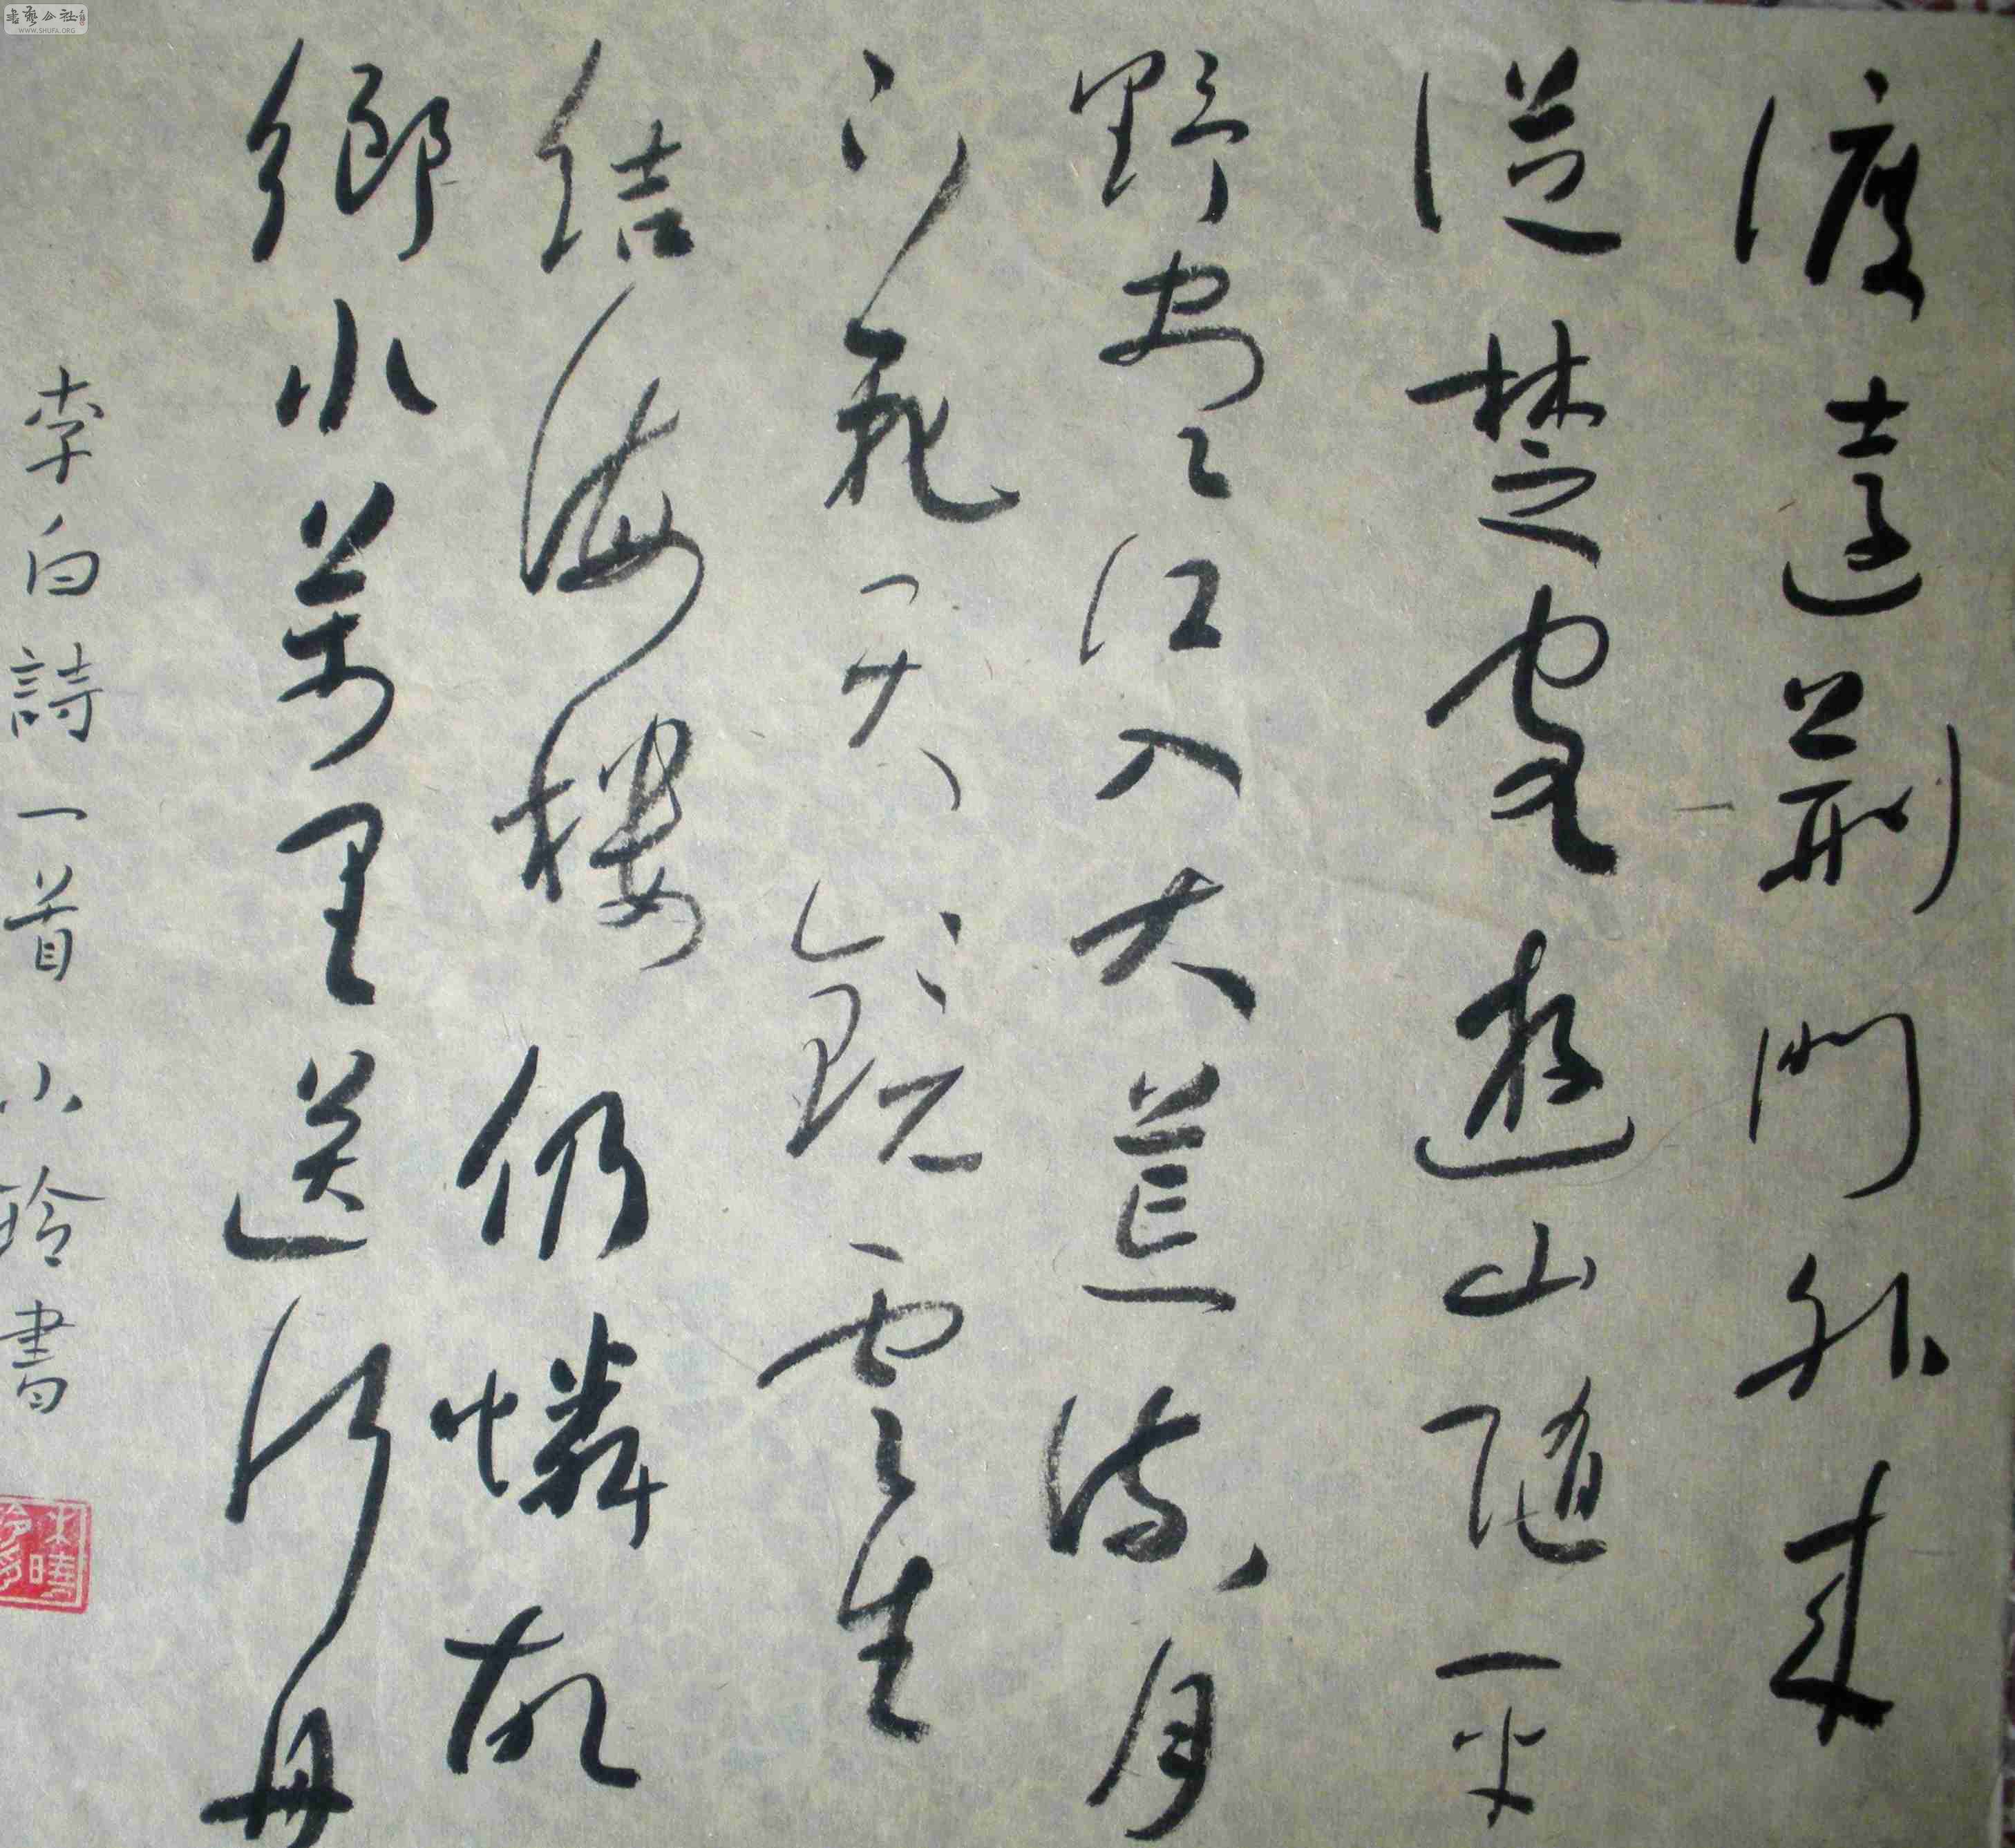 渡遠荆門外來
從楚國遊山隨平
野盡江入大荒流月
下飛天鏡雲生
結海樓仍憐故
鄉水萬里送行舟
李白詩一首 小玲書
書藝公社
WWW.SHUFA.ORG